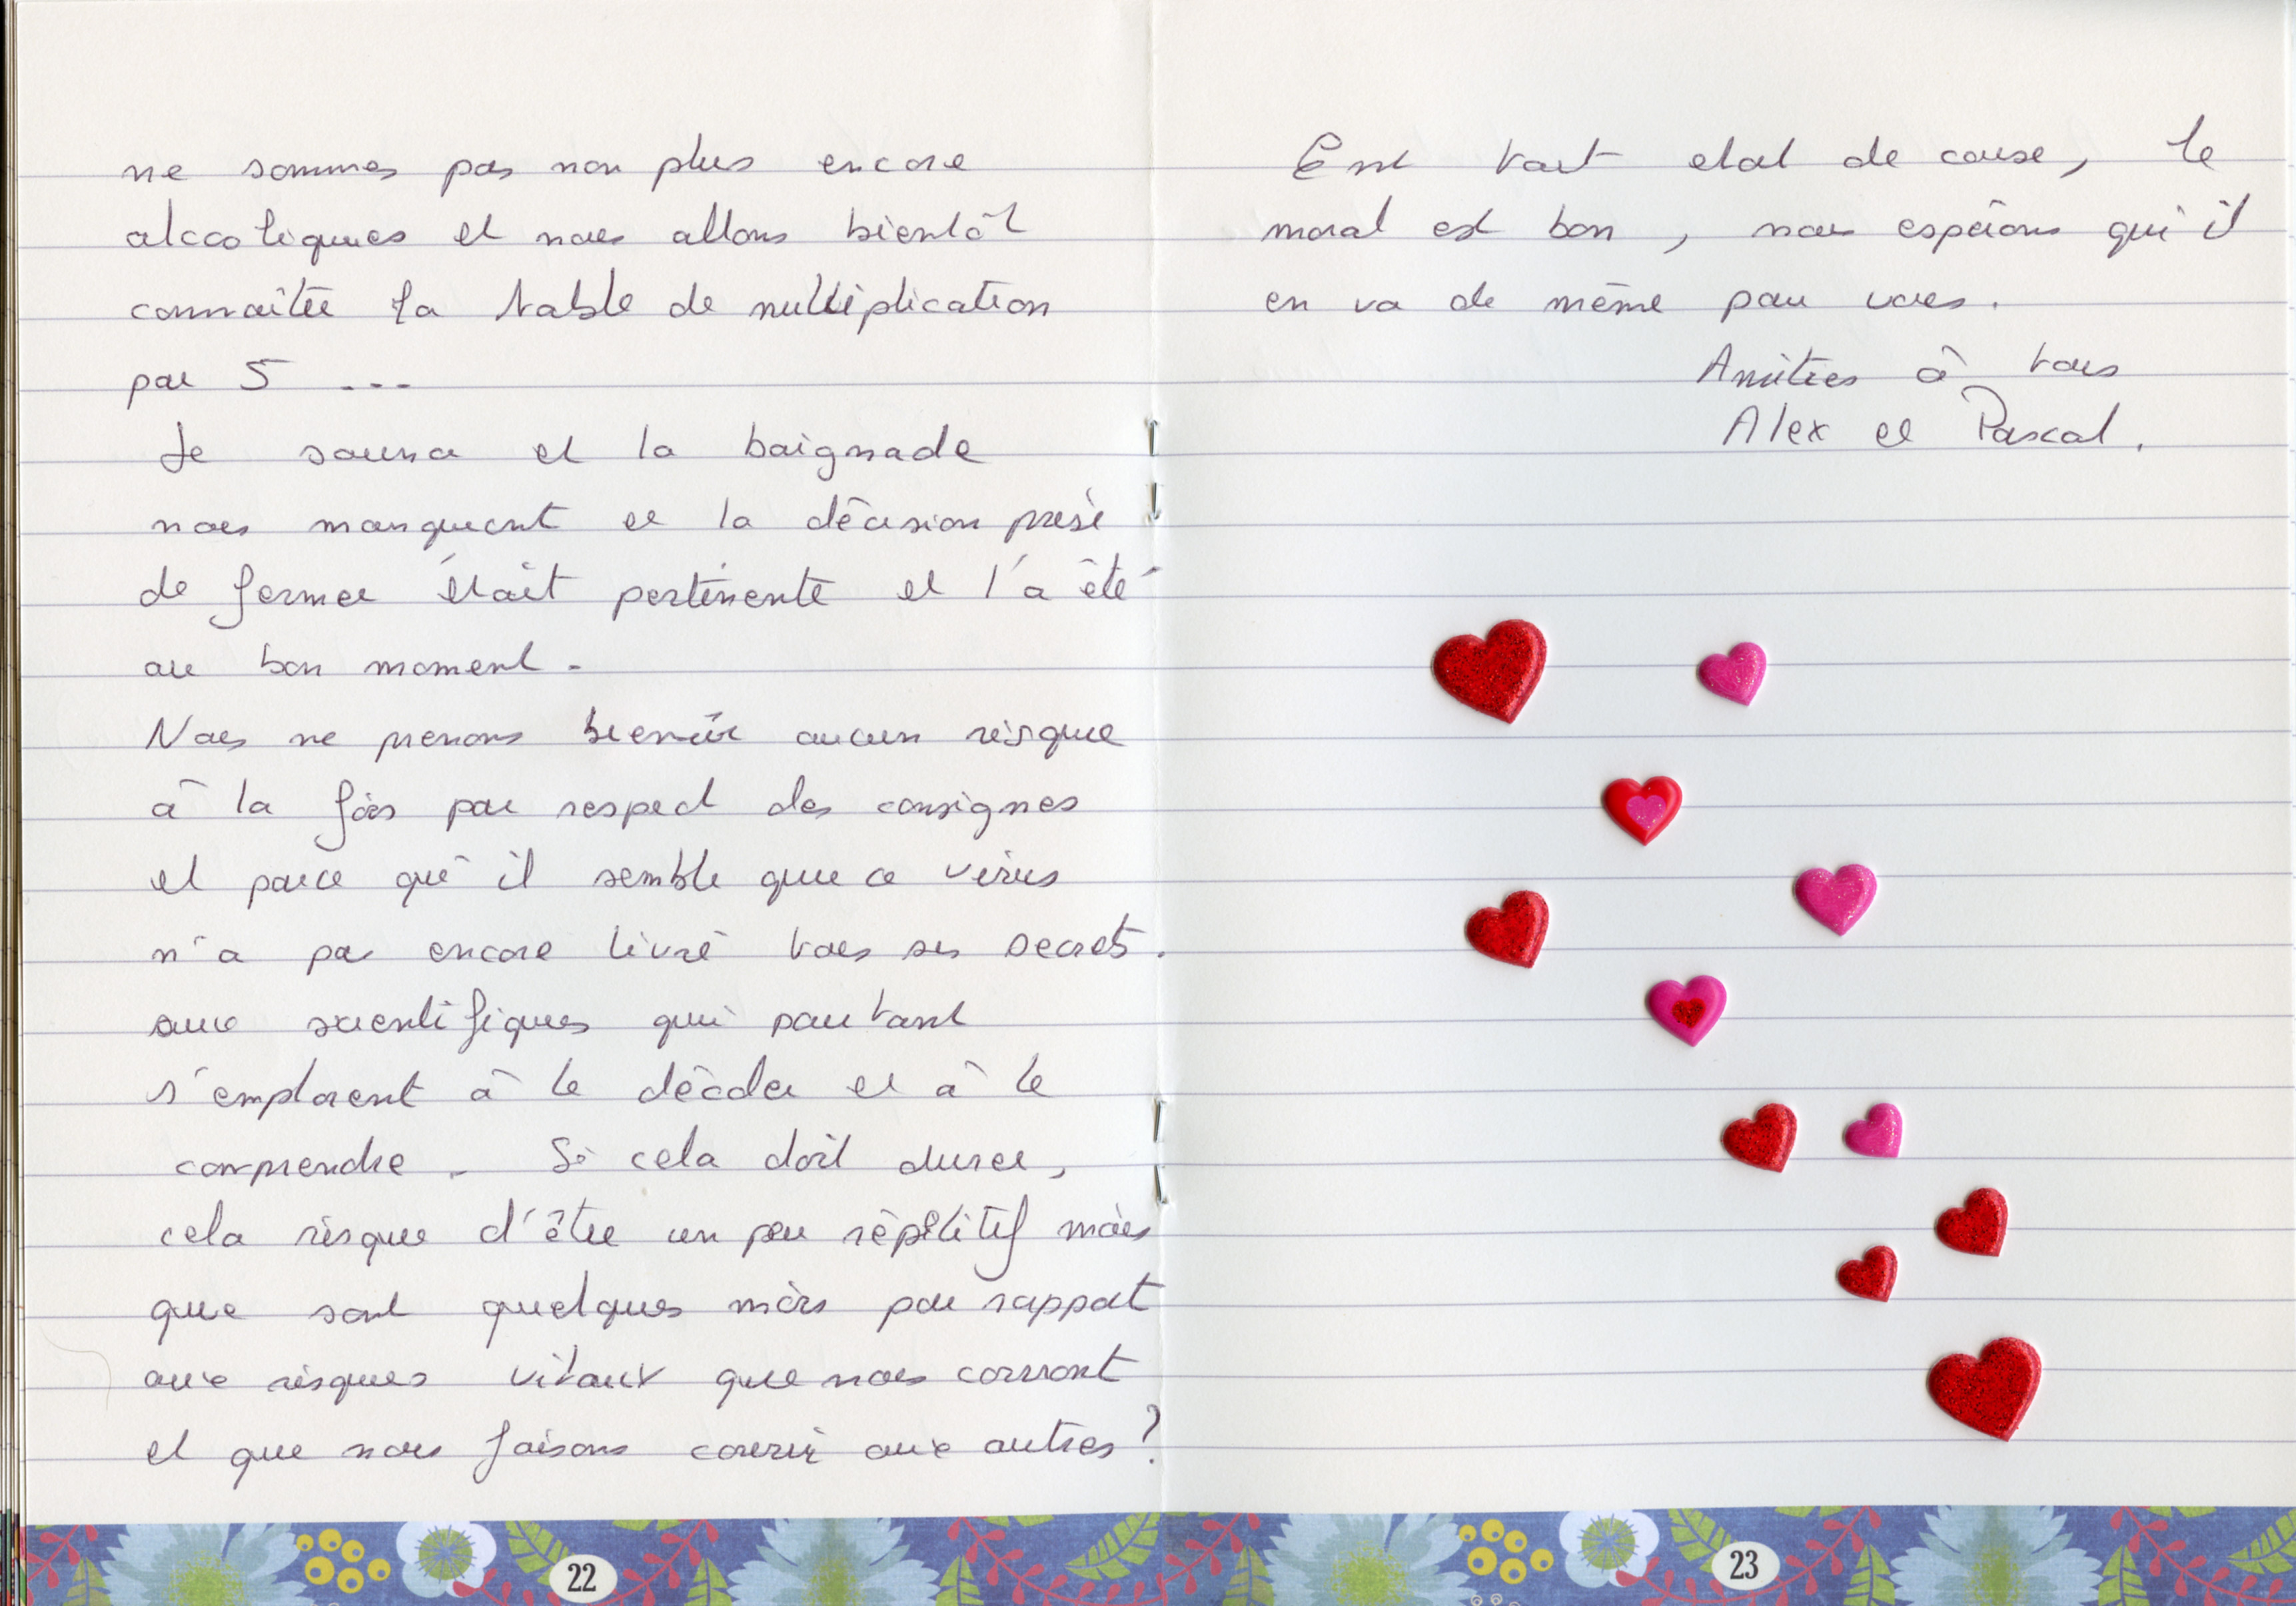 ne sommes pas non plus encore
alcooliques et nous allons bientôt
connaître la table de multiplication
par 5 ---
Le sauna et la baignade
nous manquent et la décision prise
de fermer était pertinente et l'a été
au bon moment.
Nous ne prenons bien sûr aucun risque
à la fois par respect des consignes
et parce qu'il semble que ce virus
n'a pas encore livré tous ses secrets.
aux scientifiques qui pourtant
s'emploient à le décoder et à le
comprendre. Si cela doit durer,
cela risque d'être un peu répétitif mais
que sont quelques mois par rapport
aux risques vitaux que nous courront
et que nous faisons courir aux autres ?
22
En tout état de cause, le
moral est bon, nous espérons qu'il
en va de même pour vous.
Amitiés à tous
Alex et Pascal.
23